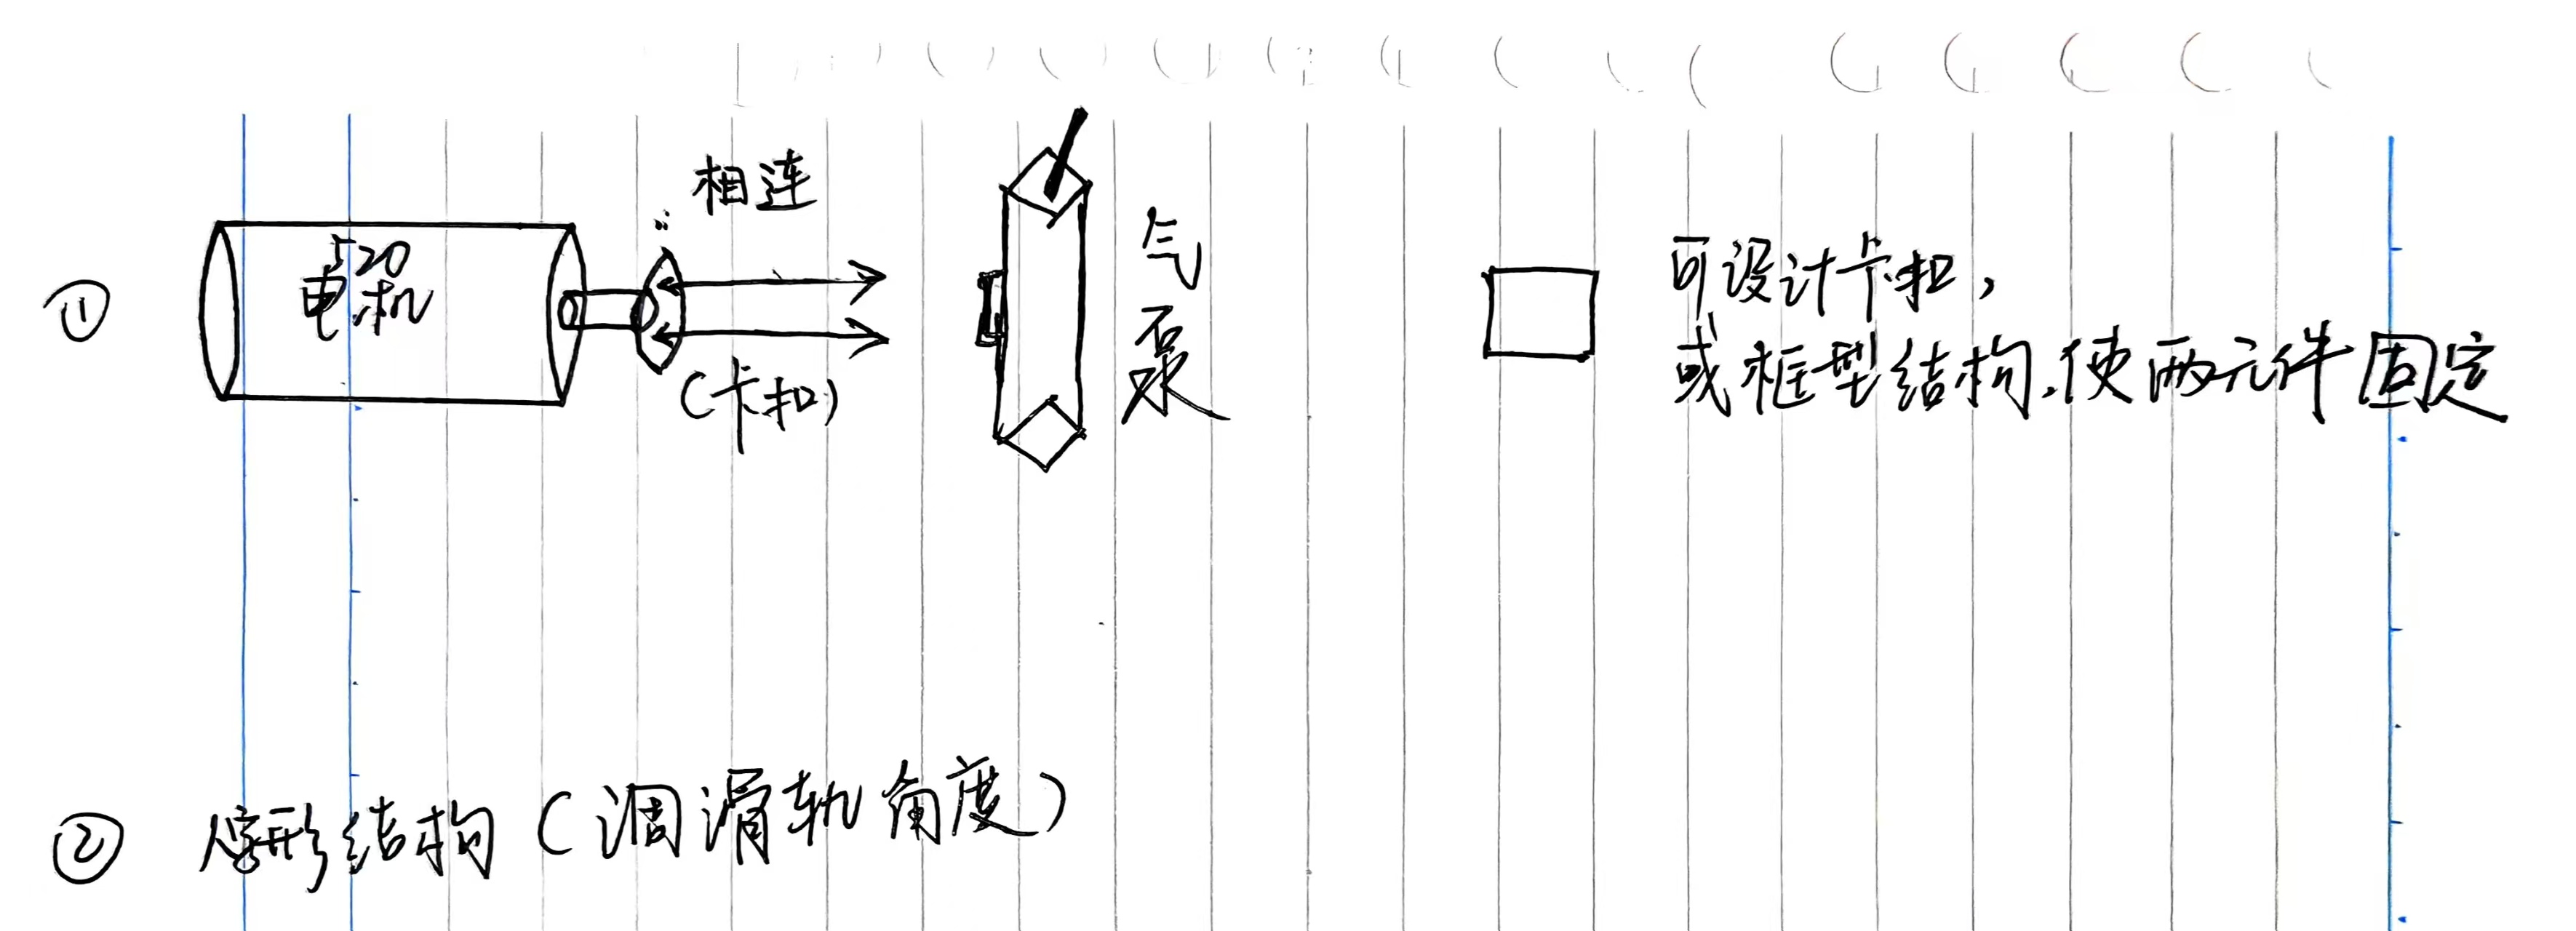 ①
520
电机
相连
(卡扣)
气
泵
可设计卡扣，
或框型结构，使两元件固定
② 人字形结构（调滑轨角度）